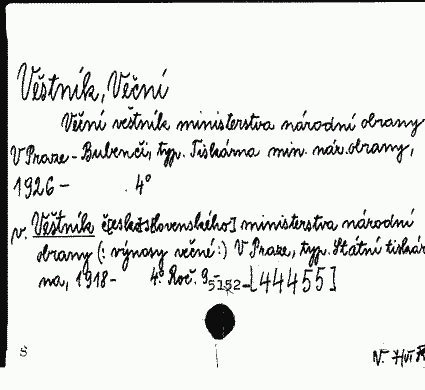 Věstník, Věcní
Věcní věstník ministerstva národní obrany
V Praze - Bubenči, typ. Tiskárna min. nár. obrany,
1926 - 4°
v. Věstník česk[oslovenského] ministerstva národní
obrany (: výnosy věcné :) V Praze, typ. Státní tiskár
na, 1918 - 4° Roč. 9-
5152-[44455]
8